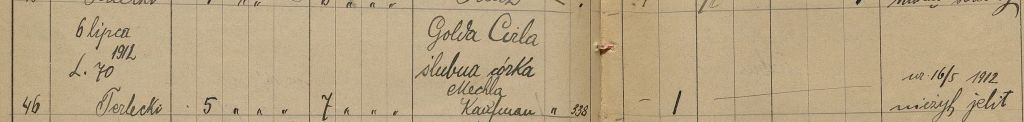 6 lipca
1912
L. 70
Golda Cirla
ślubna córka
Mechla
46 Terlecki 5 " " " 7 " " " Kaufman " 338 — 1
ur 16/5 1912
nieżyt jelit